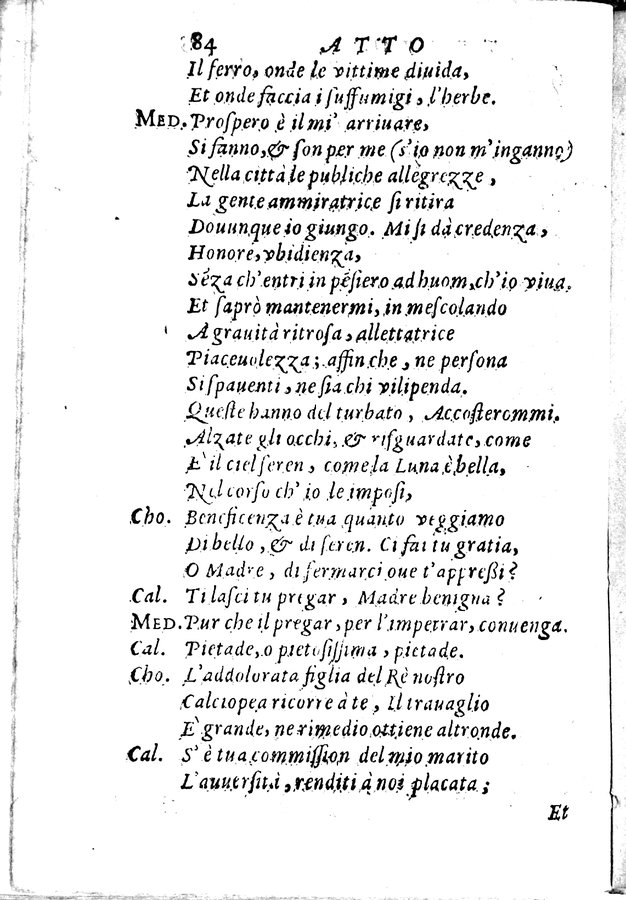 84 ATTO
Il ferro, onde le vittime diuida,
Et onde faccia i ſuffumigi, l'herbe.
MED. Proſpero è il mi' arriuare,
Si fanno, & ſon per me (s'io non m'inganno)
Nella città le publiche allegrezze,
La gente ammiratrice ſi ritira
Douunque io giungo. Mi ſi dà credenza,
Honore, vbidienza,
Séza ch'entri in péſiero ad huom, ch'io viua.
Et ſaprò mantenermi, in meſcolando
A grauità ritroſa, allettatrice
Piaceuolezza; affin che, ne perſona
Si ſpauenti, ne ſia chi vilipenda.
Queſte hanno del turbato, Accoſterommi.
Alzate gli occhi, & riſguardate, come
È il ciel ſeren, come la Luna è bella,
Nel corſo ch'io le impoſi,
Cho. Beneficenza è tua quanto veggiamo
Di bello, & di ſeren. Ci fai tu gratia,
O Madre, di fermarci oue t'appreßi?
Cal. Ti laſci tu pregar, Madre benigna?
MED. Pur che il pregar, per l'impetrar, conuenga.
Cal. Pietade, o pietoſiſſima, pietade.
Cho. L'addolorata figlia del Rè noſtro
Calciopea ricorre à te, Il trauaglio
È grande, ne rimedio ottiene altronde.
Cal. S'è tua commiſſion del mio marito
L'auuerſità, renditi à noi placata;
Et